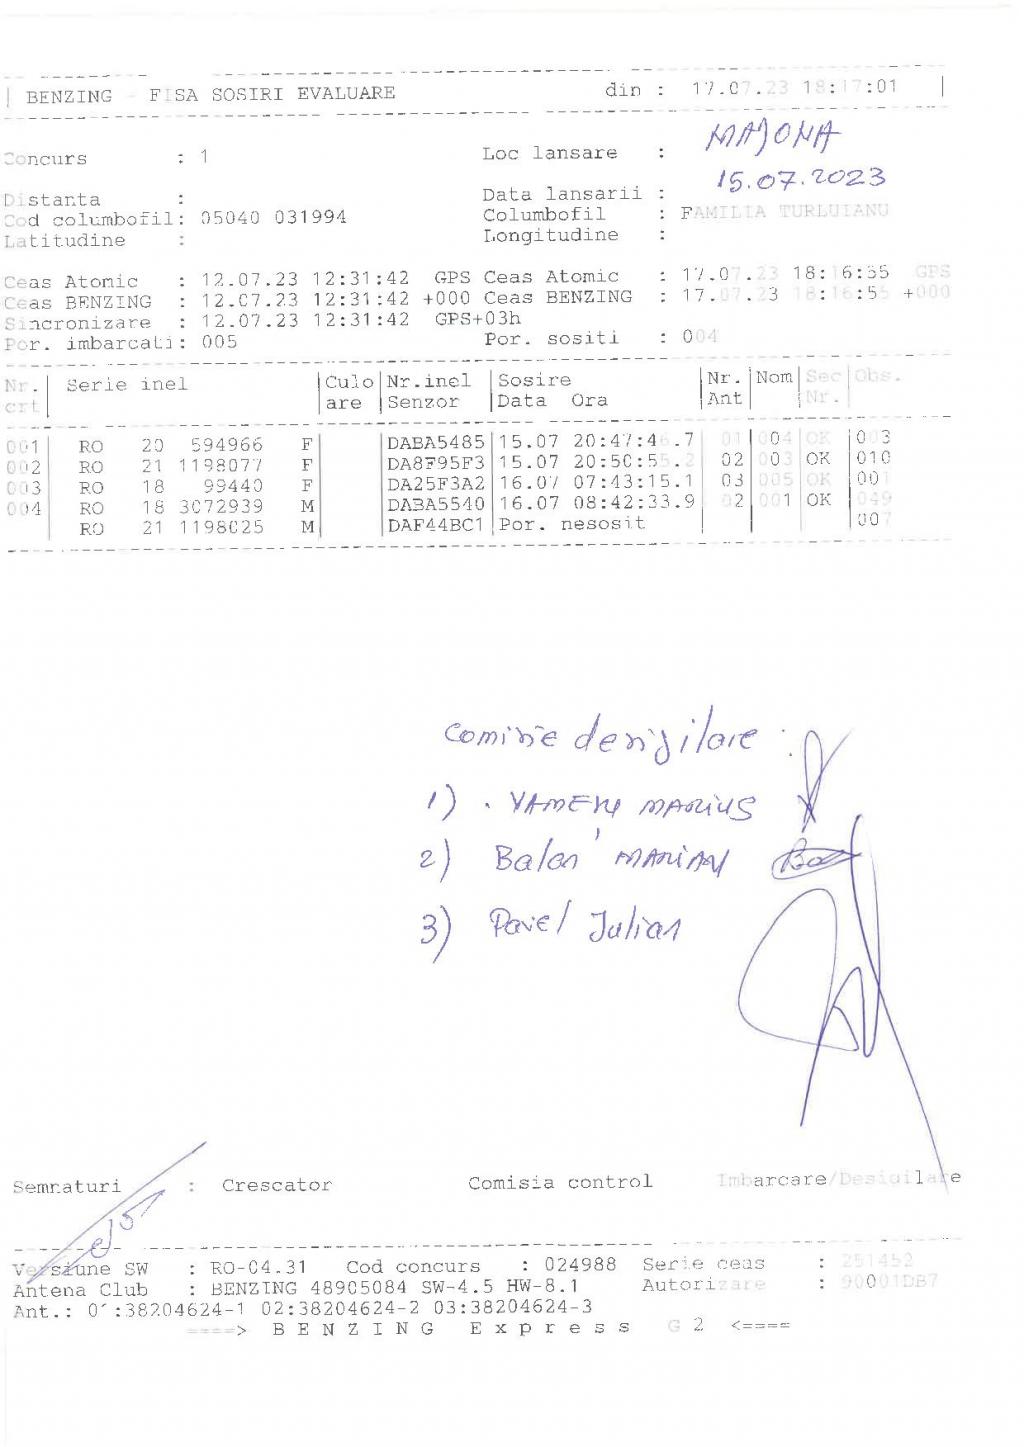 BENZING - FISA SOSIRI EVALUARE din : 17.07.23 18:17:01
Concurs : 1 Loc lansare : MAJONA
Distanta : Data lansarii : 15.07.2023
Cod columbofil: 05040 031994 Columbofil : FAMILIA TURLUIANU
Latitudine : Longitudine :
Ceas Atomic : 12.07.23 12:31:42 GPS Ceas Atomic : 17.07.23 18:16:55 GPS
Ceas BENZING : 12.07.23 12:31:42 +000 Ceas BENZING : 17.07.23 18:16:55 +000
Sincronizare : 12.07.23 12:31:42 GPS+03h
Por. imbarcati: 005 Por. sositi : 004
Nr. Serie inel Culo Nr.inel Sosire Nr. Nom Sec Obs.
crt are Senzor Data Ora Ant Nr.
001 RO 20 594966 F DABA5485 15.07 20:47:46.7 01 004 OK 003
002 RO 21 1198077 F DA8F95F3 15.07 20:50:55.2 02 003 OK 010
003 RO 18 99440 F DA25F3A2 16.07 07:43:15.1 03 005 OK 001
004 RO 18 3072939 M DABA5540 16.07 08:42:33.9 02 001 OK 049
RO 21 1198025 M DAF44BC1 Por. nesosit 007
Comisie desigilare :
1) MARIUS
2) Balan MARIAN
3) Pavel Iulian
Semnaturi : Crescator Comisia control Imbarcare/Desigilare
Versiune SW : RO-04.31 Cod concurs : 024988 Serie ceas : 251452
Antena Club : BENZING 48905084 SW-4.5 HW-8.1 Autorizare : 90001DB7
Ant.: 01:38204624-1 02:38204624-2 03:38204624-3
====> B E N Z I N G E x p r e s s G 2 <====